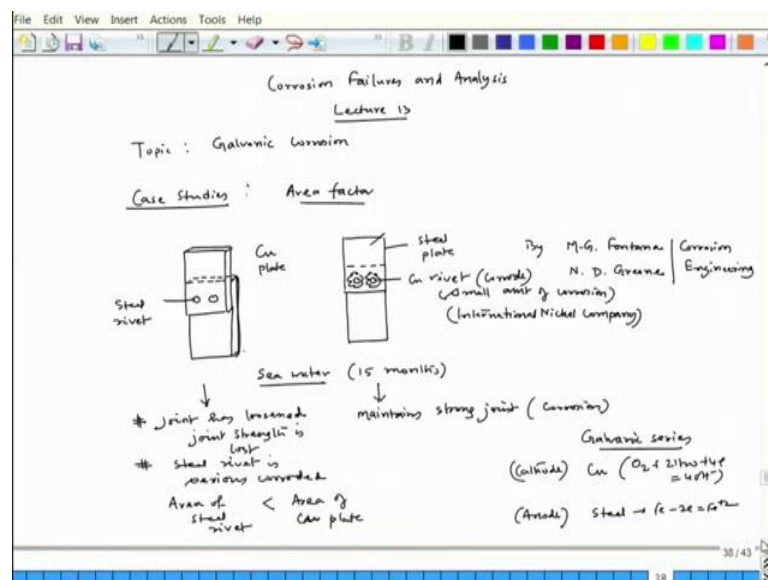 File Edit View Insert Actions Tools Help
B I
Corrosion Failures and Analysis
Lecture 13
Topic : Galvanic Corrosion
Case Studies : Area factor
Cu plate
Steel rivet
steel plate
Cu rivet (Cathode)
(Small amt of corrosion)
(International Nickel Company)
By M.G. Fontana
N. D. Greene
Corrosion Engineering
Sea water (15 months)
# joint has loosened
joint strength is lost
# Steel rivet is serious corroded
Area of steel rivet < Area of Cu plate
maintains strong joint (Corrosion)
Galvanic series
(Cathode) Cu (O2 + 2H2O + 4e = 4OH-)
(Anode) Steel → Fe - 2e = Fe+2
38 / 43
38